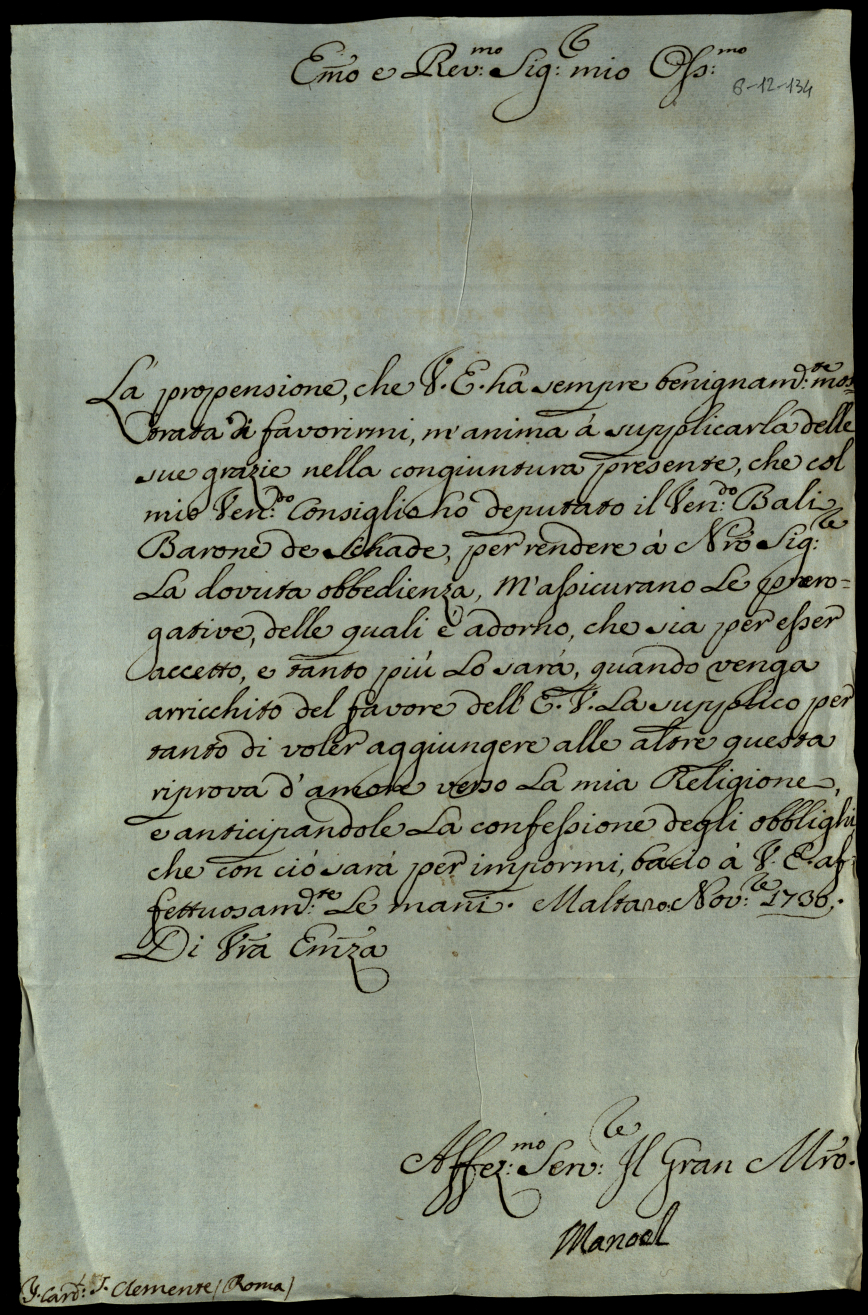 Em̃o e Rev:mo Sig:re mio Oss:mo
8-12-134
La propensione, che V. E. há sempre benignam:te mos=
trata di favorirmi, m'anima á supplicarla delle
sue grazie nella congiuntura presente, che col
mio Ven:do Consiglio hó deputato il Ven:do Bali
Barone de Schade, per rendere á Nr̃o Sig:re
La dovuta obbedienza, M'assicurano Le prero=
gative, delle quali é adorno, che sia per esser
accetto, e tanto piú Lo sará, quando venga
arricchito del favore dell'E. V. La supplico per
tanto di voler aggiungere alle altre questa
riprova d'amore verso La mia Religione,
e anticipandole La confessione degli obblighi
che con ció sará per impormi, bacio á V. E. af=
fettuosam:te Le mani. Malta 20. Nov:re 1730.
Di Vr̃a Em̃za
Affez:mo Serv:re Il Gran Mr̃o.
Manoel
S. Clemente (Roma)